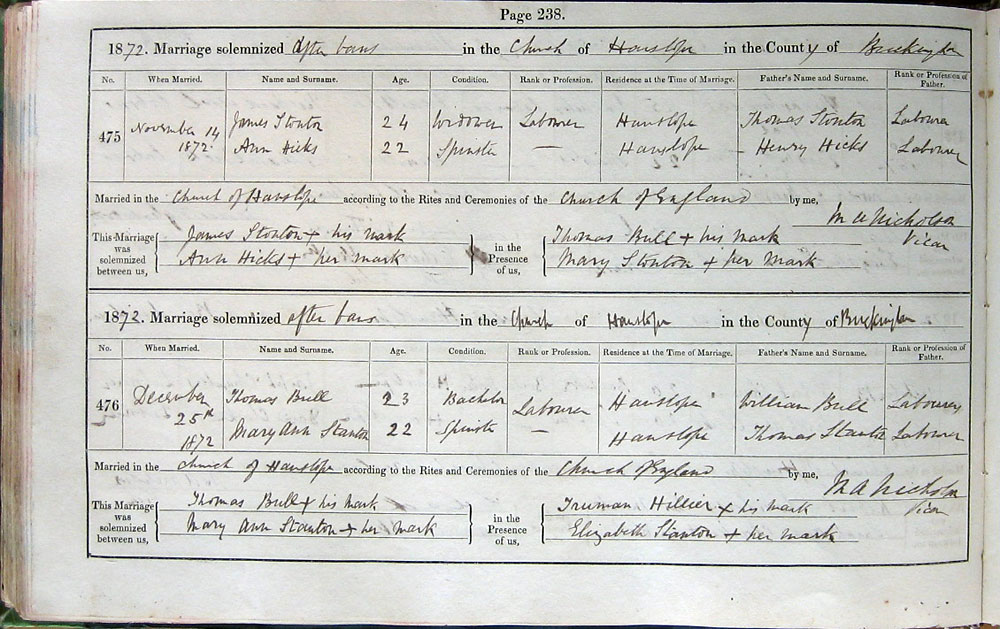 Page 238.
1872. Marriage solemnized after bans in the Church of Hanslope in the County of Buckingham
No. When Married. Name and Surname. Age. Condition. Rank or Profession. Residence at the Time of Marriage. Father's Name and Surname. Rank or Profession of Father.
475 November 14 James Stonton 24 Widower Labourer Hanslope Thomas Stonton Labourer
1872. Ann Hicks 22 Spinster — Hanslope Henry Hicks Labourer
Married in the Church of Hanslope according to the Rites and Ceremonies of the Church of England by me,
M A Nicholson
Vicar
This Marriage was solemnized between us, James Stonton + his mark in the Presence of us, Thomas Bull + his mark
Ann Hicks + her mark Mary Stonton + her mark
1872. Marriage solemnized after bans in the Church of Hanslope in the County of Buckingham
No. When Married. Name and Surname. Age. Condition. Rank or Profession. Residence at the Time of Marriage. Father's Name and Surname. Rank or Profession of Father.
476 December Thomas Bull 23 Bachelor Labourer Hanslope William Bull Labourer
25th
1872 Mary Ann Stanton 22 Spinster — Hanslope Thomas Stanton Labourer
Married in the Church of Hanslope according to the Rites and Ceremonies of the Church of England by me,
M A Nicholson
Vicar
This Marriage was solemnized between us, Thomas Bull + his mark in the Presence of us, Truman Hillier + his mark
Mary Ann Stanton + her mark Elizabeth Stanton + her mark